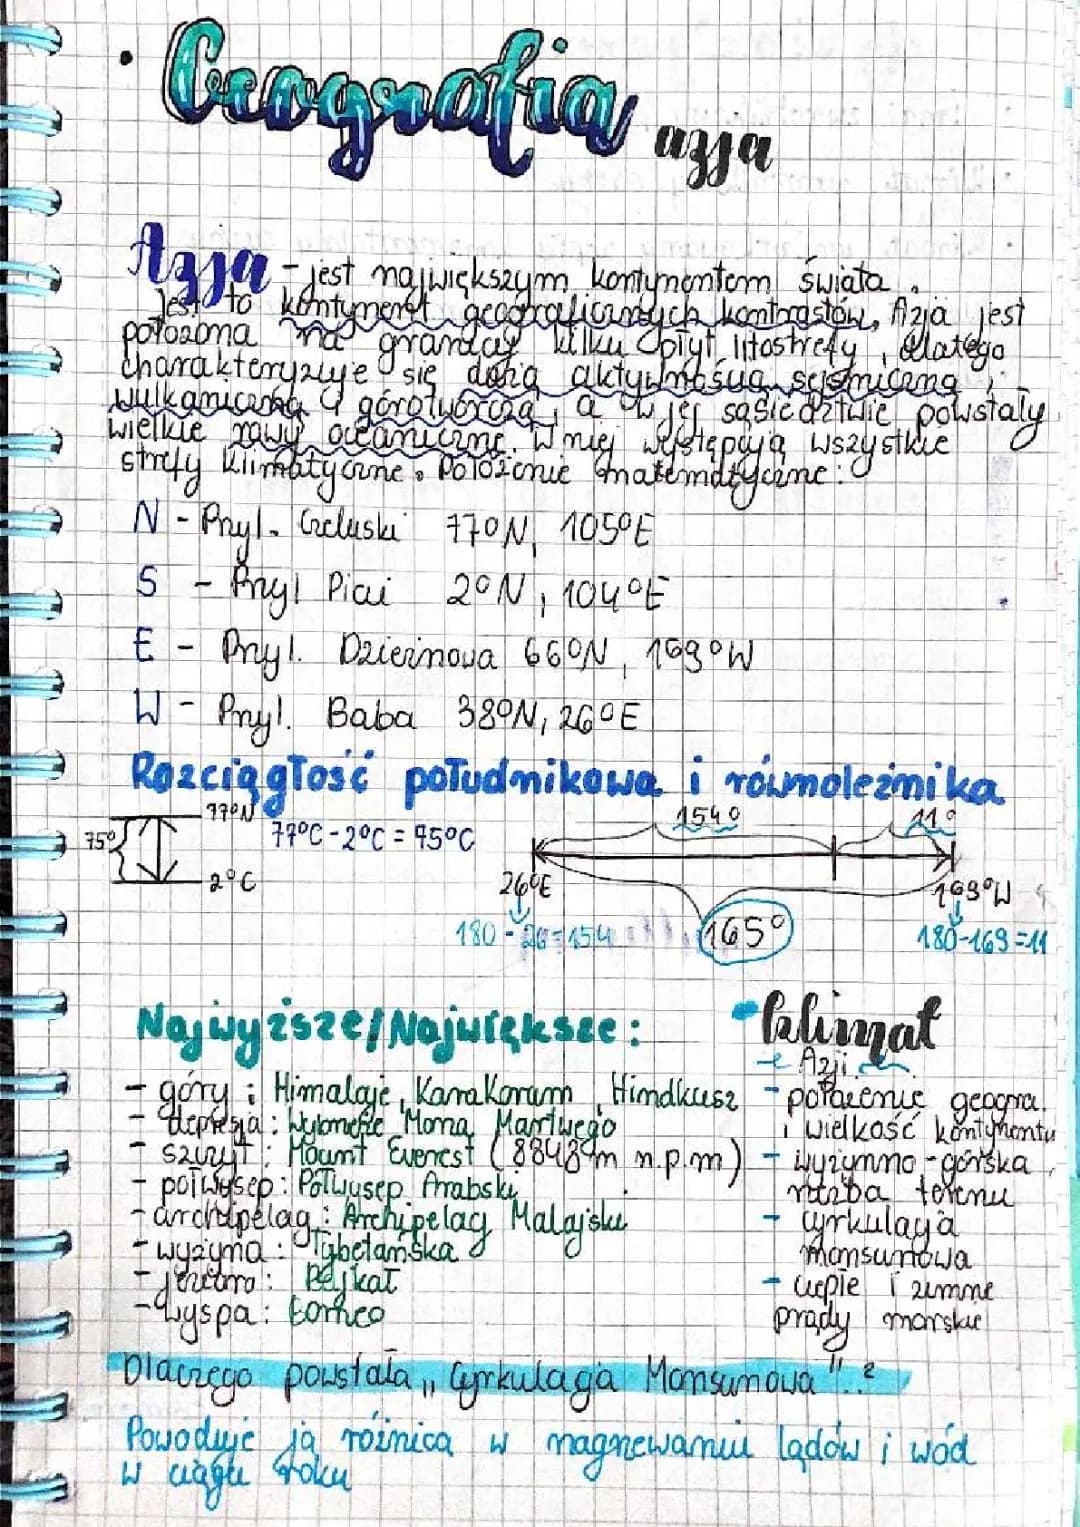 Geografia
azja
Azja - jest największym kontynentem świata.
Jest to kontynent geograficznych kontrastów, Azja jest
położona na granicy kilku płyt litosfery, dlatego
charakteryzuje się dużą aktywnością sejsmiczną,
wulkaniczną i górotwórczą, a w jej sąsiedztwie powstały
wielkie rowy oceaniczne. W niej występują wszystkie
strefy klimatyczne. Położenie matematyczne:
N - Przyl. Czeluski 77°N, 105°E
S - Przyl Piai 2°N, 104°E
E - Przyl. Dzieżnowa 66°N, 169°W
W - Przyl. Baba 38°N, 26°E
Rozciągłość południkowa i równoleżnika
77°N
75°
77°C - 2°C = 75°C
2°C
154°
11°
26°E
169°W
180 - 26 = 154
165°
180-169=11
Najwyższe/Największe:
- góry: Himalaje, Karakorum, Hindkusz
- depresja: Wybrzeże Morza Martwego
- szczyt: Mount Everest (8848 m n.p.m)
- półwysep: Półwysep Arabski
- archipelag: Archipelag Malajski
- wyżyna: Tybetańska
- jezioro: Bajkał
- wyspa: Borneo
klimat
Azji
- położenie geogra.
i wielkość kontynentu
- wyżynno-górska
rzeźba terenu
- cyrkulacja
monsunowa
- ciepłe i zimne
prądy morskie
Dlaczego powstała „Cyrkulacja Monsunowa"..?
Powoduje ją różnica w nagrzewaniu lądów i wód
w ciągu roku